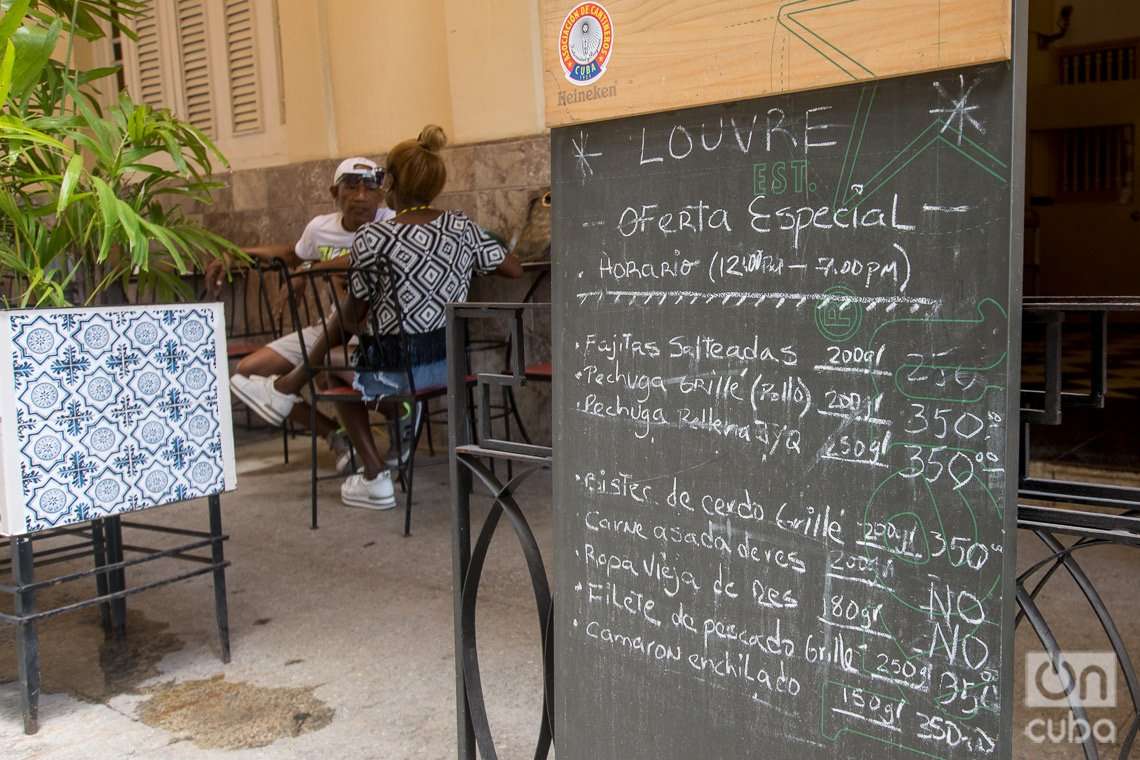 ASOCIACIÓN DE CANTINEROS
CUBA
Heineken
LOUVRE
EST.
- OFERTA ESPECIAL -
. HORARIO (12:00 PM - 7.00 PM)
. Fajitas Salteadas 200gr 250
. Pechuga Grillé (Pollo) 200gr 350.00
. Pechuga Rellena J/Q 250gr 350.00
. Bister de cerdo Grillé 200gr 350.00
Carne asada de res 200gr NO
. Ropa Vieja de Res 180gr NO
. Filete de pescado Grillé 250gr 350.00
. Camaron enchilado 150gr 350.00
On
cuba